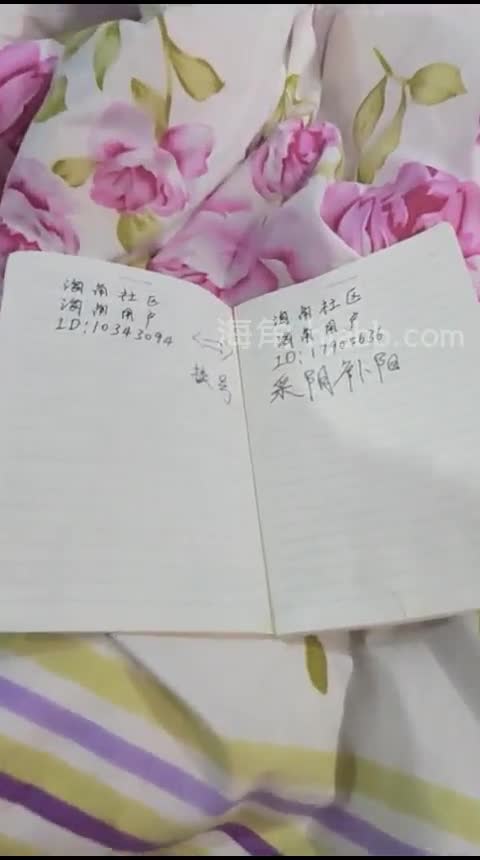 海角社区
海角用户
ID:10343094
换号
海角社区
海角用户
采阴补阳